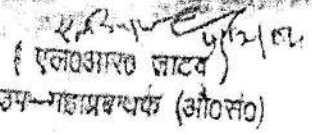 ( एल०आर० जाटव )
उप-महाप्रबन्धक (औ०सं०)